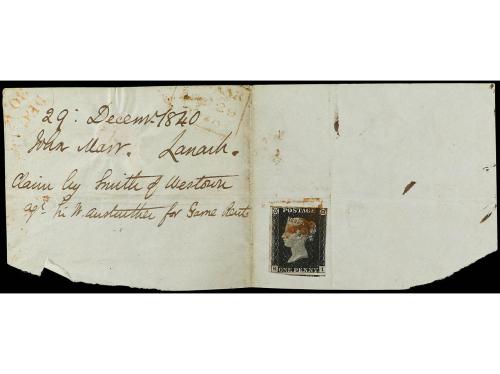 29: Decemr 1840
John Marr. Lanark.
Claim by Smith of Westown
agt. Sir W. Anstruther for Game Rent
POSTAGE
ONE PENNY